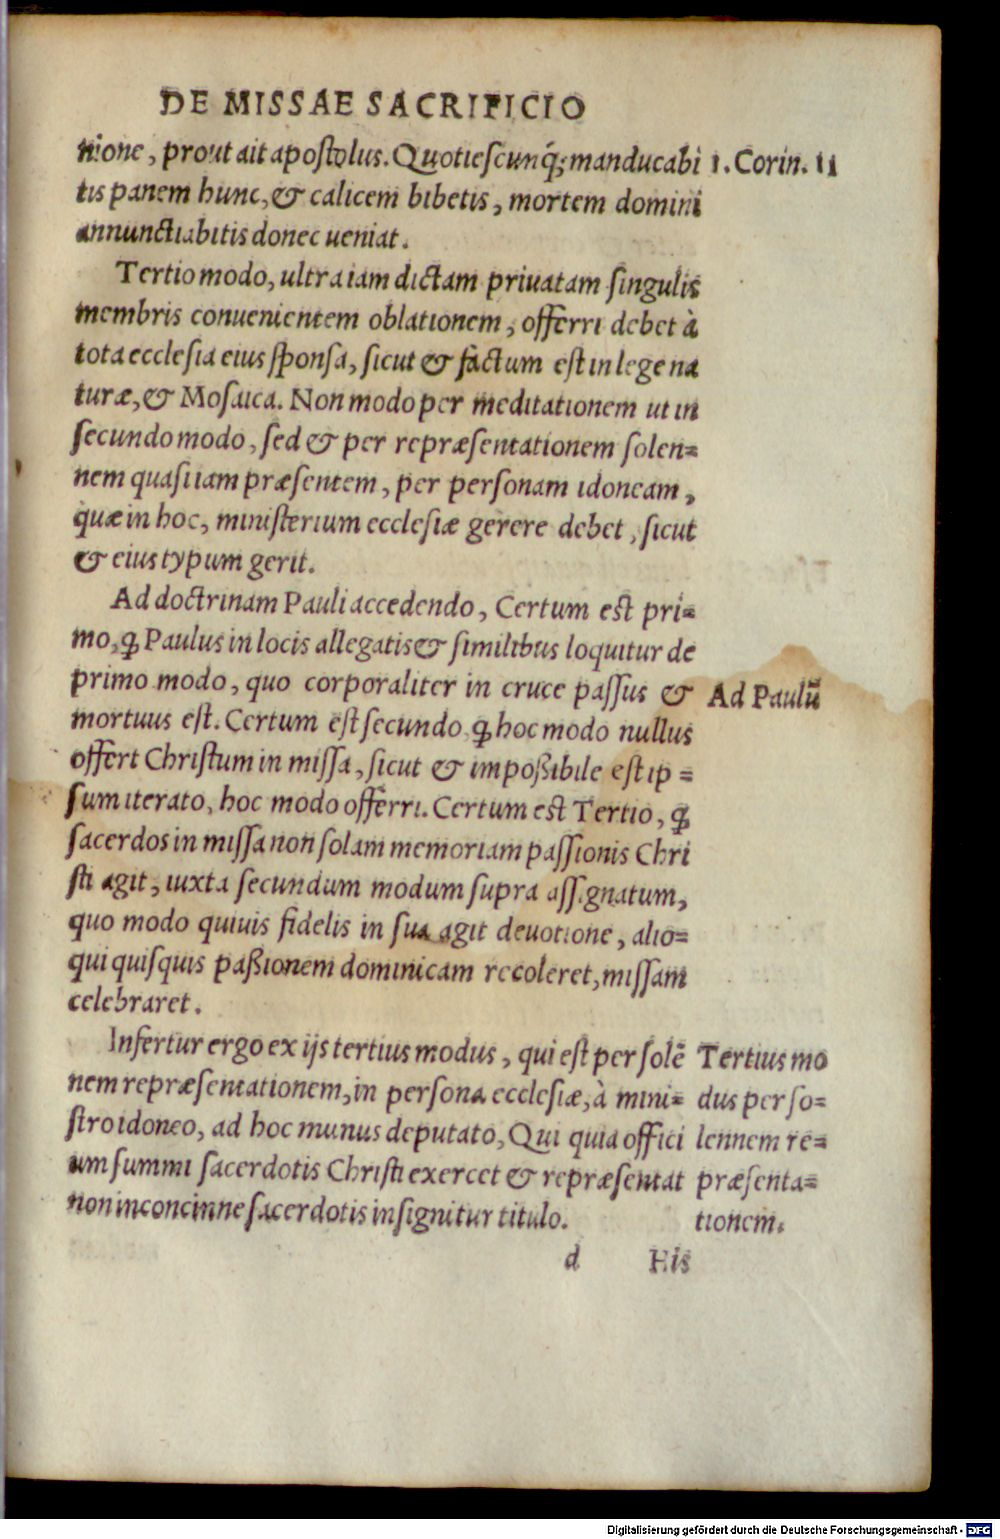 DE MISSAE SACRIFICIO
nione, prout ait apostolus. Quotiescunq́; manducabi
1. Corin. 11
tis panem hunc, & calicem bibetis, mortem domini
annunctiabitis donec ueniat.
Tertio modo, ultra iam dictam priuatam singulis
membris conuenientem oblationem, offerri debet à
tota ecclesia eius sponsa, sicut & factum est in lege na
turæ, & Mosaica. Non modo per meditationem ut in
secundo modo, sed & per repræsentationem solen=
nem quasi iam præsentem, per personam idoneam,
quæ in hoc, ministerium ecclesiæ gerere debet, sicut
& eius typum gerit.
Ad doctrinam Pauli accedendo, Certum est pri=
mo, ꝙ Paulus in locis allegatis & similibus loquitur de
primo modo, quo corporaliter in cruce passus &
Ad Paulū
mortuus est. Certum est secundo, ꝙ hoc modo nullus
offert Christum in missa, sicut & impoßibile est ip=
sum iterato, hoc modo offerri. Certum est Tertio, ꝙ
sacerdos in missa non solam memoriam passionis Chri
sti agit, iuxta secundum modum supra assignatum,
quo modo quiuis fidelis in sua agit deuotione, alio=
qui quisquis paßionem dominicam recoleret, missam
celebraret.
Infertur ergo ex ijs tertius modus, qui est per solē
nem repræsentationem, in persona ecclesiæ, à mini=
stro idoneo, ad hoc munus deputato, Qui quia offici
um summi sacerdotis Christi exercet & repræsentat
non inconcinne sacerdotis insignitur titulo.
Tertius mo
dus per so=
lennem re=
præsenta=
tionem.
d
His
Digitalisierung gefördert durch die Deutsche Forschungsgemeinschaft - DFG